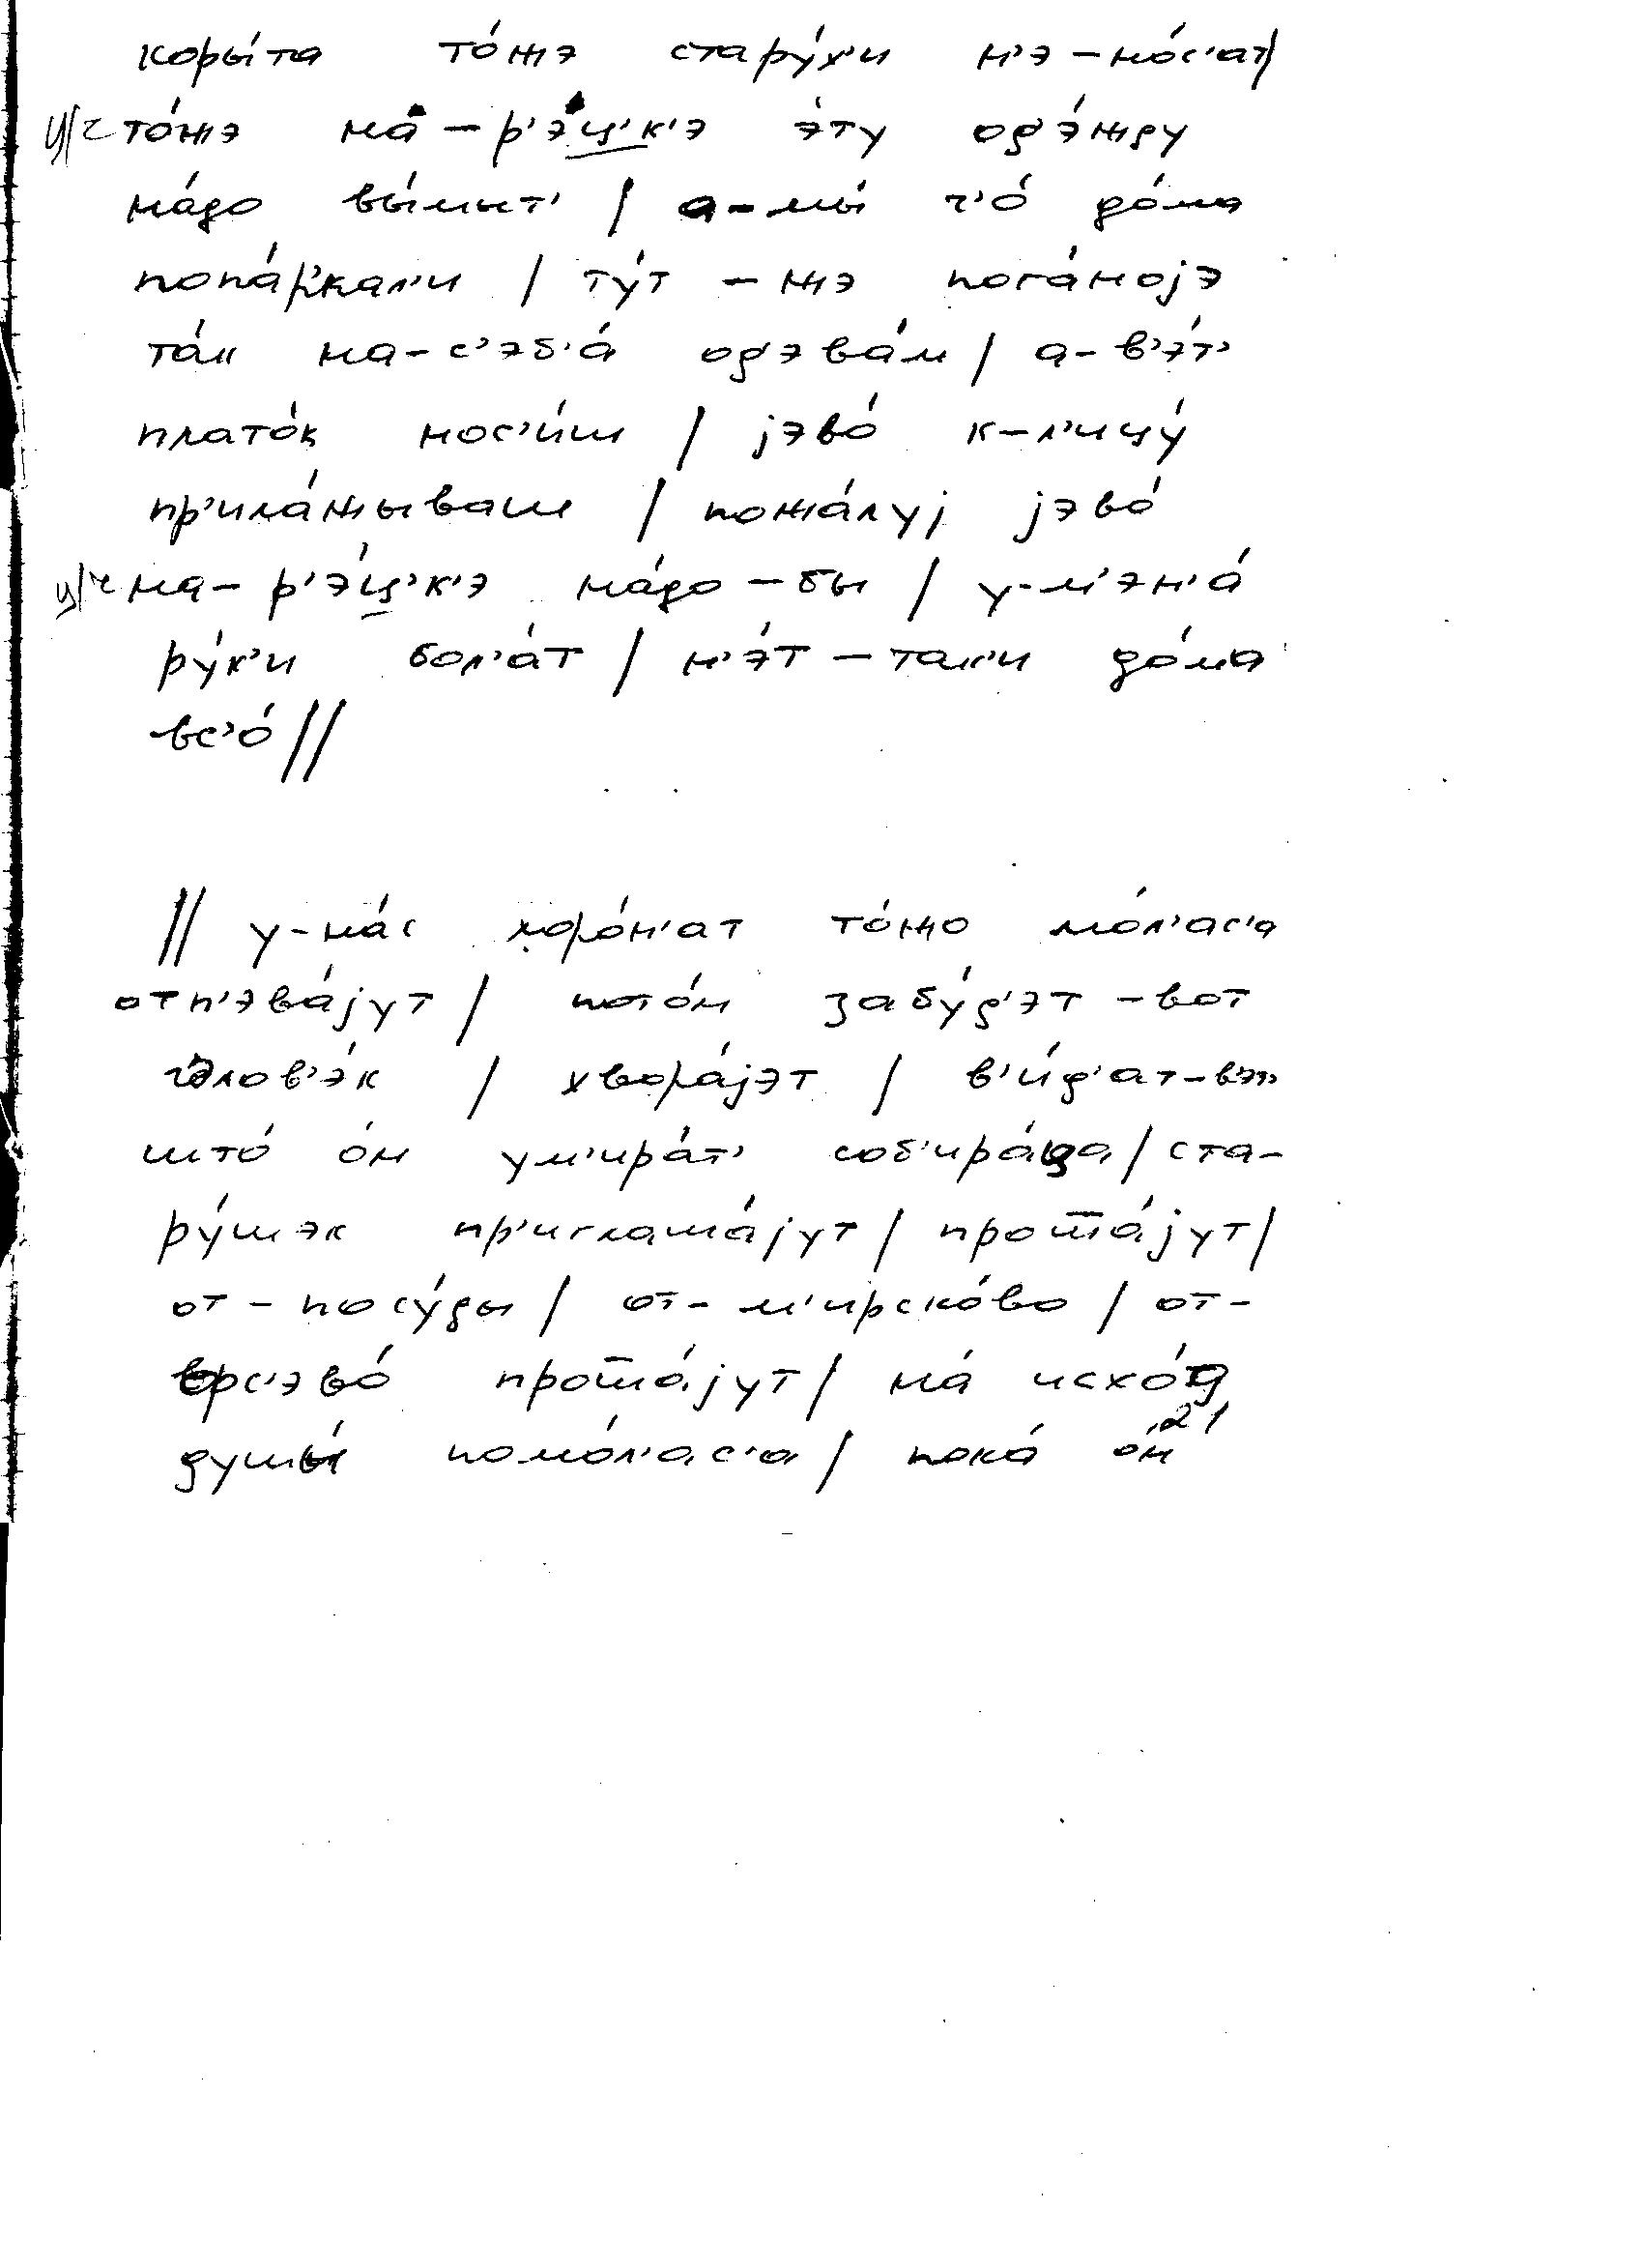 коры́та то́жэ стару́х'и н'э-но́с'ат/
ц/ч то́жэ на́-р'эц'к'э э́ту од'э́жду
на́до вы́мыт' / а-мы́ ч'о́ до́ма
попа́ркал'и / ту́т-жэ пога́нојэ
та́к на-с'эб'а́ од'эва́м / а-в'э́т'
плато́к нос'и́ш / јэво́ к-л'ицу́
пр'ила́жываш / пожа́луј јэво́
ц/ч на-р'э́ц'к'э на́до-бы / у-м'эн'а́
ру́к'и бол'а́т / н'э́т-так'и до́ма
вс'о́ //
// у-на́с хоро́н'ат то́жо мо́л'ас'а
отп'эва́јут / пото́м забу́д'эт-вот
ч'элов'э́к / хвора́јэт / в'и́д'ат-в'эт'
што́ о́н ум'ира́т' соб'ира́ца / ста-
ру́шэк пр'иглаша́јут / прош̅а́јут /
от-посу́ды / от-м'ирско́во / от-
вс'эво́ прош̅а́јут / на́ исхо́д
душы́ помо́л'ас'а / пока́ о́н
21